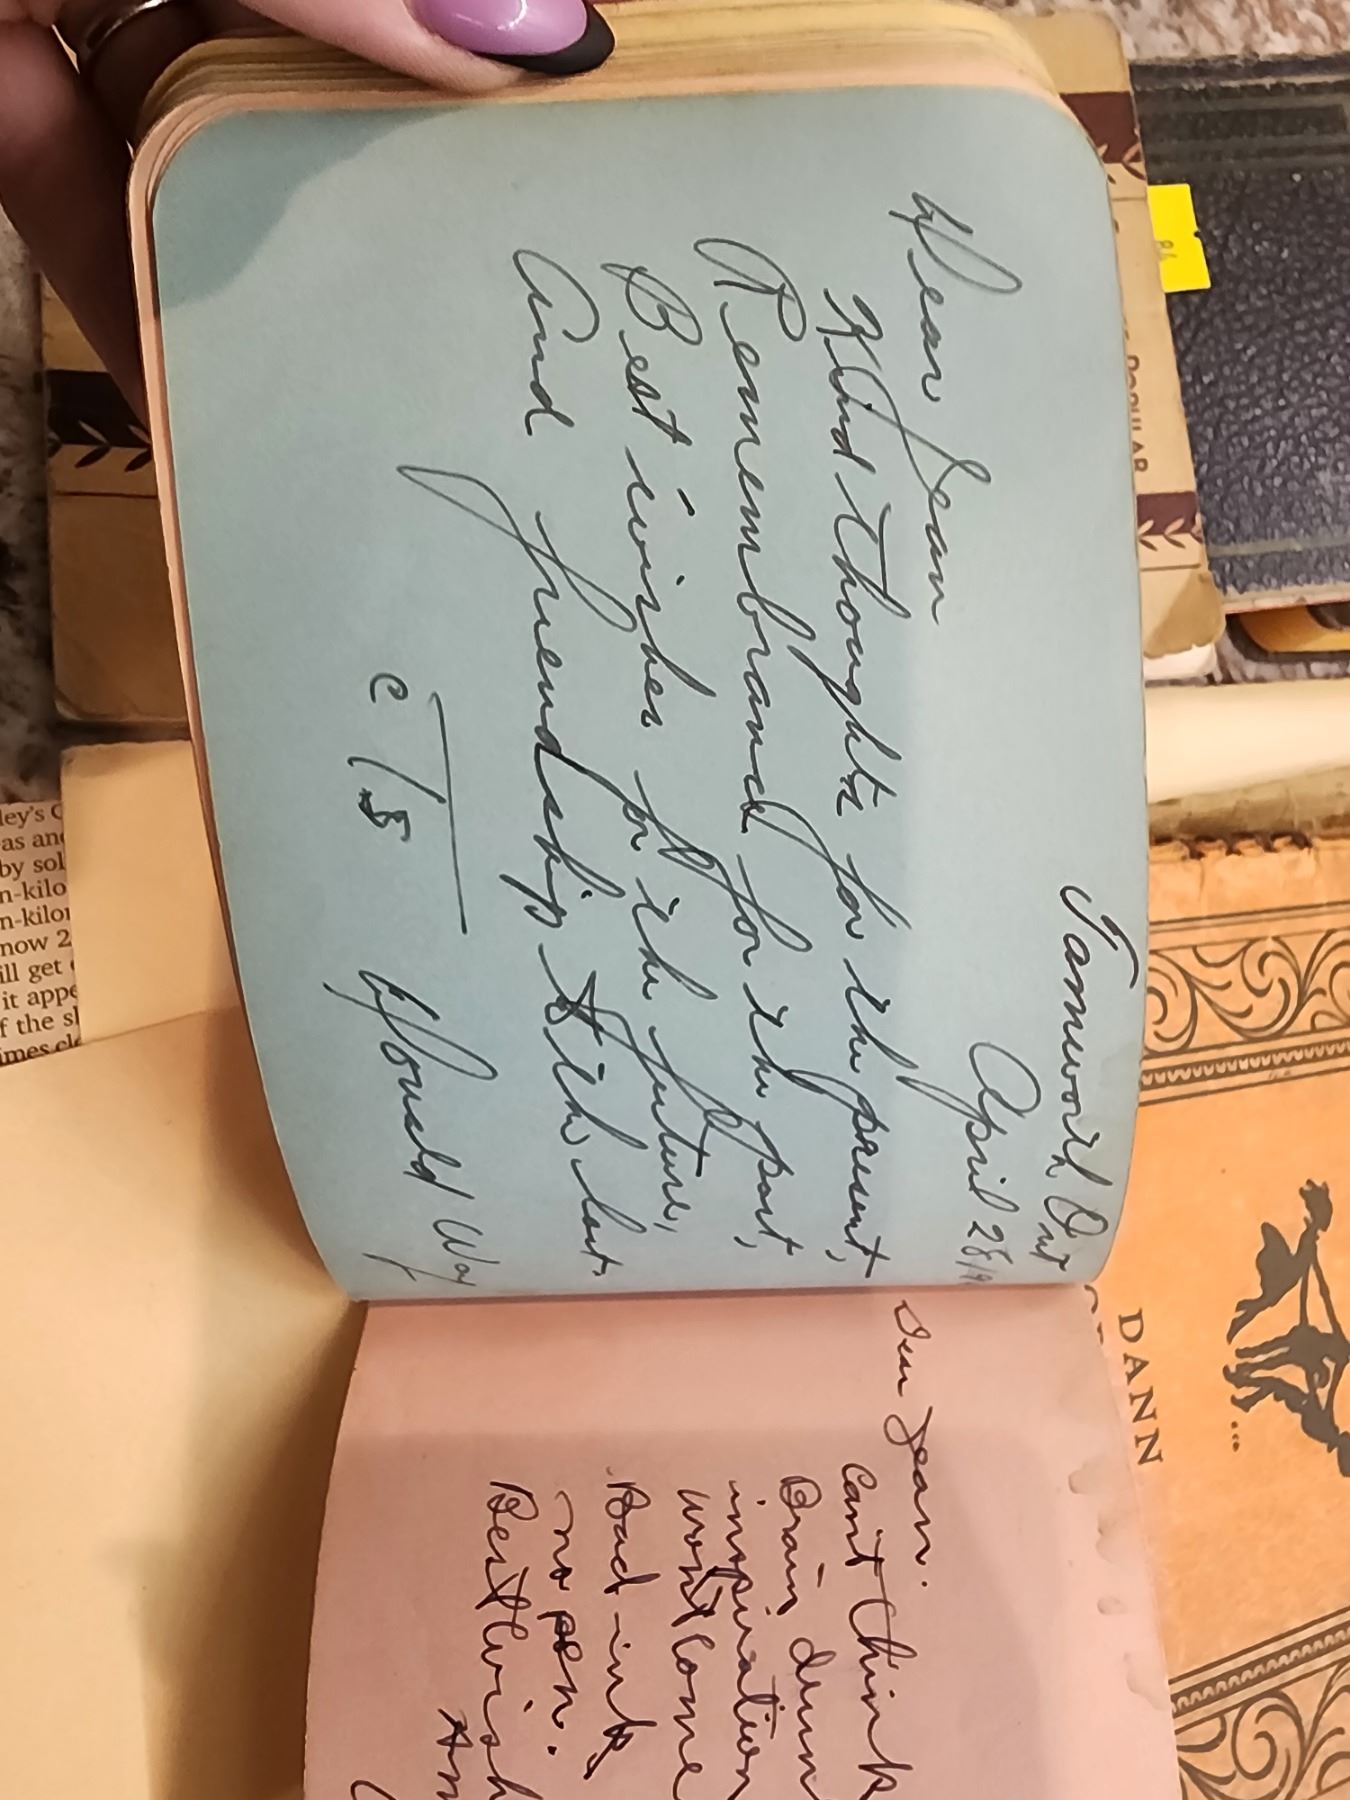 Tamworth Ont
April 28/19
Dear Jean
Kind thoughts for the present,
Remembrance for the past,
Best wishes for the future,
And friendship to the last.
c/5
Donald Way
Dear Jean.
Cant think
Brain dum
inspiration
wont come
Bad ink
no pen.
Best wish
Am
DANN
POPULAR
84
ley's C
as and
by sol
n-kilo
n-kilor
now 2
ill get
it appe
f the sl
imes cle